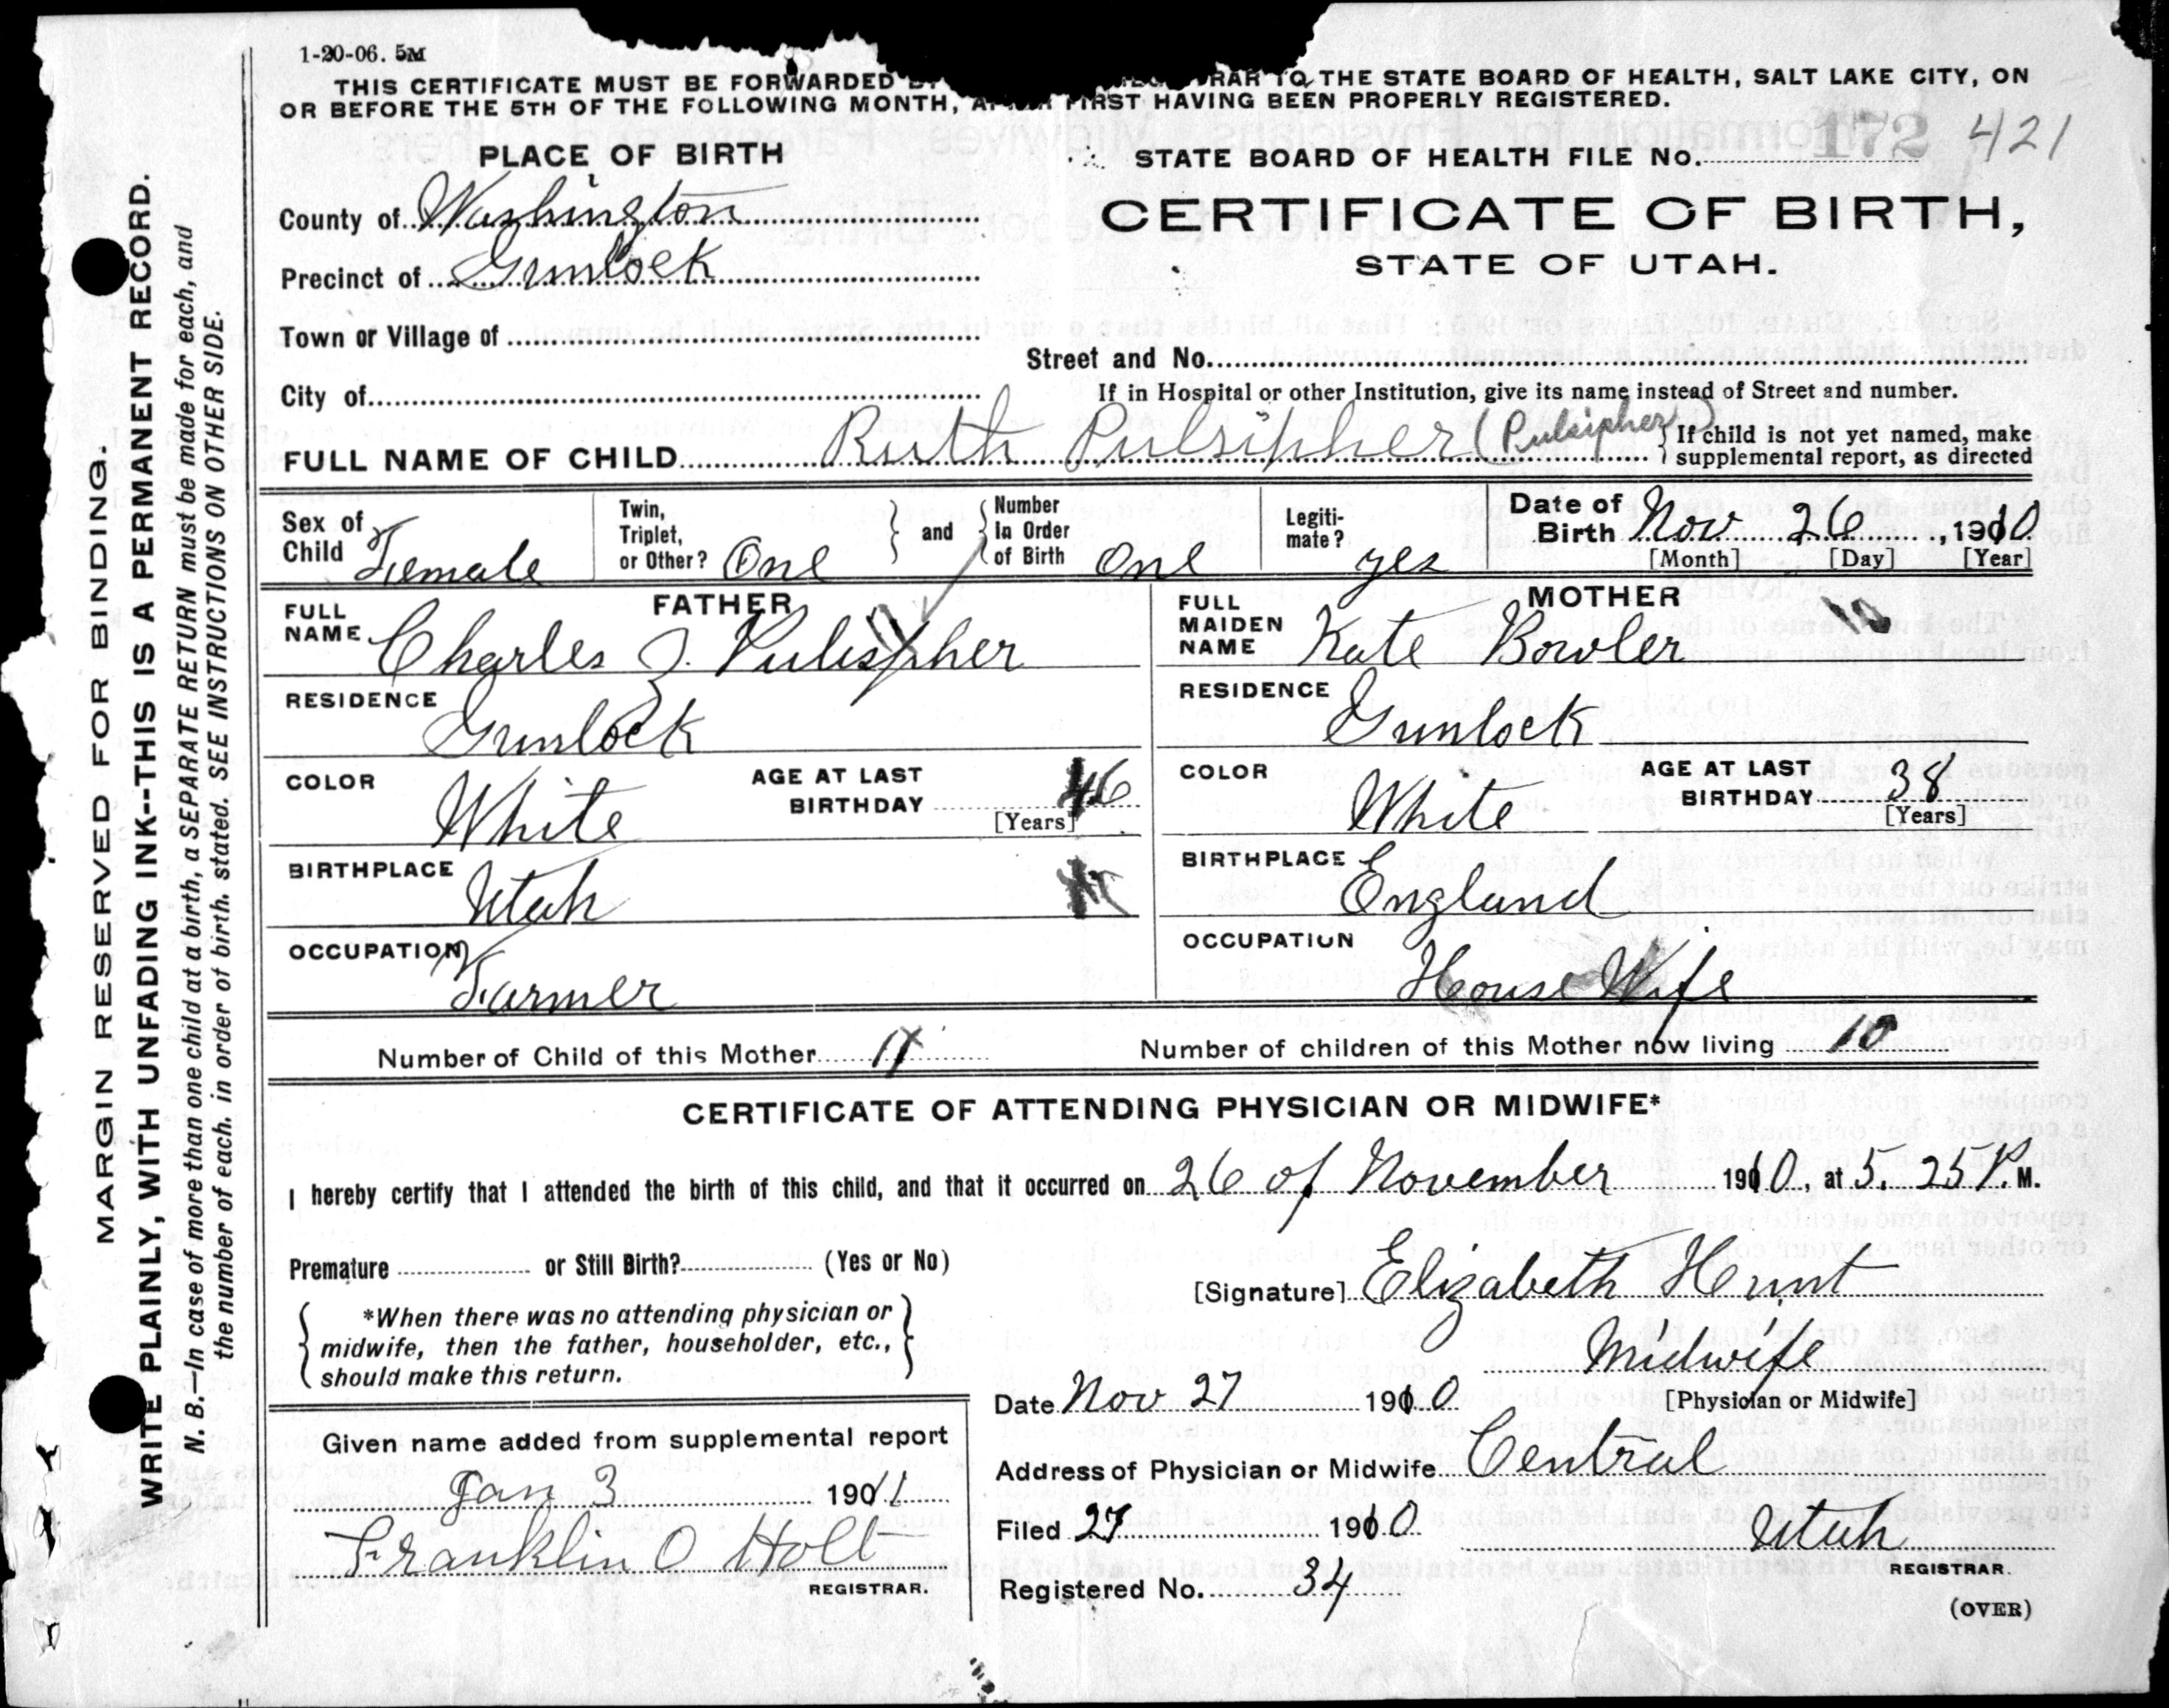 1-20-06. 5M
THIS CERTIFICATE MUST BE FORWARDED TO THE STATE BOARD OF HEALTH, SALT LAKE CITY, ON
OR BEFORE THE 5TH OF THE FOLLOWING MONTH, FIRST HAVING BEEN PROPERLY REGISTERED.
PLACE OF BIRTH
STATE BOARD OF HEALTH FILE No. 172 421
County of Washington
CERTIFICATE OF BIRTH,
Precinct of Gunlock
STATE OF UTAH.
Town or Village of
Street and No.
City of
If in Hospital or other Institution, give its name instead of Street and number.
FULL NAME OF CHILD Ruth Pulsipher (Pulsipher)
If child is not yet named, make
supplemental report, as directed
Sex of Child Female
Twin, Triplet, or Other? One
and
Number In Order of Birth One
Legiti-mate? yes
Date of Birth Nov 26, 1910
[Month] [Day] [Year]
FATHER
FULL NAME Charles J. Pulisipher
MOTHER
FULL MAIDEN NAME Kate Bowler
RESIDENCE Gunlock
RESIDENCE Gunlock
COLOR White
AGE AT LAST BIRTHDAY 46
[Years]
COLOR White
AGE AT LAST BIRTHDAY 38
[Years]
BIRTHPLACE Utah
BIRTHPLACE England
OCCUPATION Farmer
OCCUPATION House Wife
Number of Child of this Mother
Number of children of this Mother now living 10
CERTIFICATE OF ATTENDING PHYSICIAN OR MIDWIFE*
I hereby certify that I attended the birth of this child, and that it occurred on 26 of November 1910, at 5. 25 P. M.
Premature or Still Birth? (Yes or No)
[Signature] Elizabeth Hunt
*When there was no attending physician or
midwife, then the father, householder, etc.,
should make this return.
Midwife
[Physician or Midwife]
Date Nov 27 1910
Given name added from supplemental report
Jan 3 1911
Franklin O Holt
REGISTRAR.
Address of Physician or Midwife Central
Filed 27 1910
Utah
REGISTRAR.
Registered No. 34
(OVER)
MARGIN RESERVED FOR BINDING.
WRITE PLAINLY, WITH UNFADING INK--THIS IS A PERMANENT RECORD.
N. B.—In case of more than one child at a birth, a SEPARATE RETURN must be made for each, and
the number of each, in order of birth, stated. SEE INSTRUCTIONS ON OTHER SIDE.